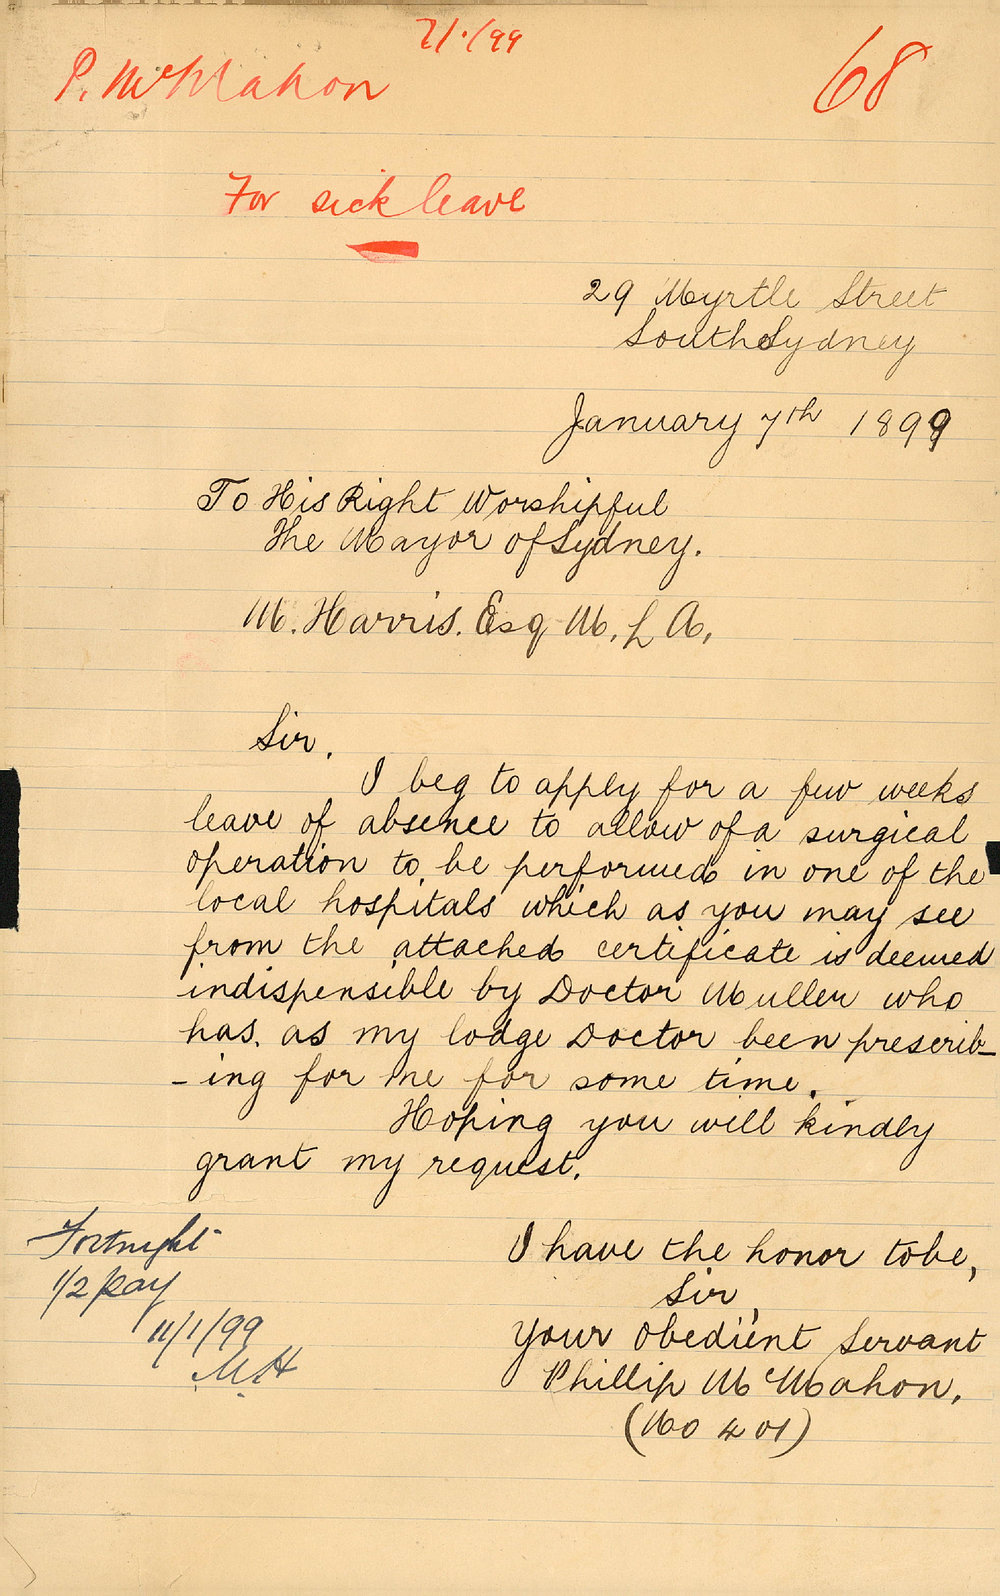 7/1/99
P. McMahon
68
For sick leave
29 Myrtle Street
South Sydney
January 7th 1899
To His Right Worshipful
The Mayor of Sydney.
M. Harris. Esq M. L A.
Sir.
I beg to apply for a few weeks
leave of absence to allow of a surgical
operation to be performed in one of the
local hospitals which as you may see
from the attached certificate is deemed
indispensible by Doctor Muller who
has. as my lodge Doctor been prescrib-
- ing for me for some time.
Hoping you will kindly
grant my request.
I have the honor to be,
Sir,
Your Obedient Servant
Phillip McMahon.
(No 401)
Fortnight
1/2 pay
11/1/99
M.H